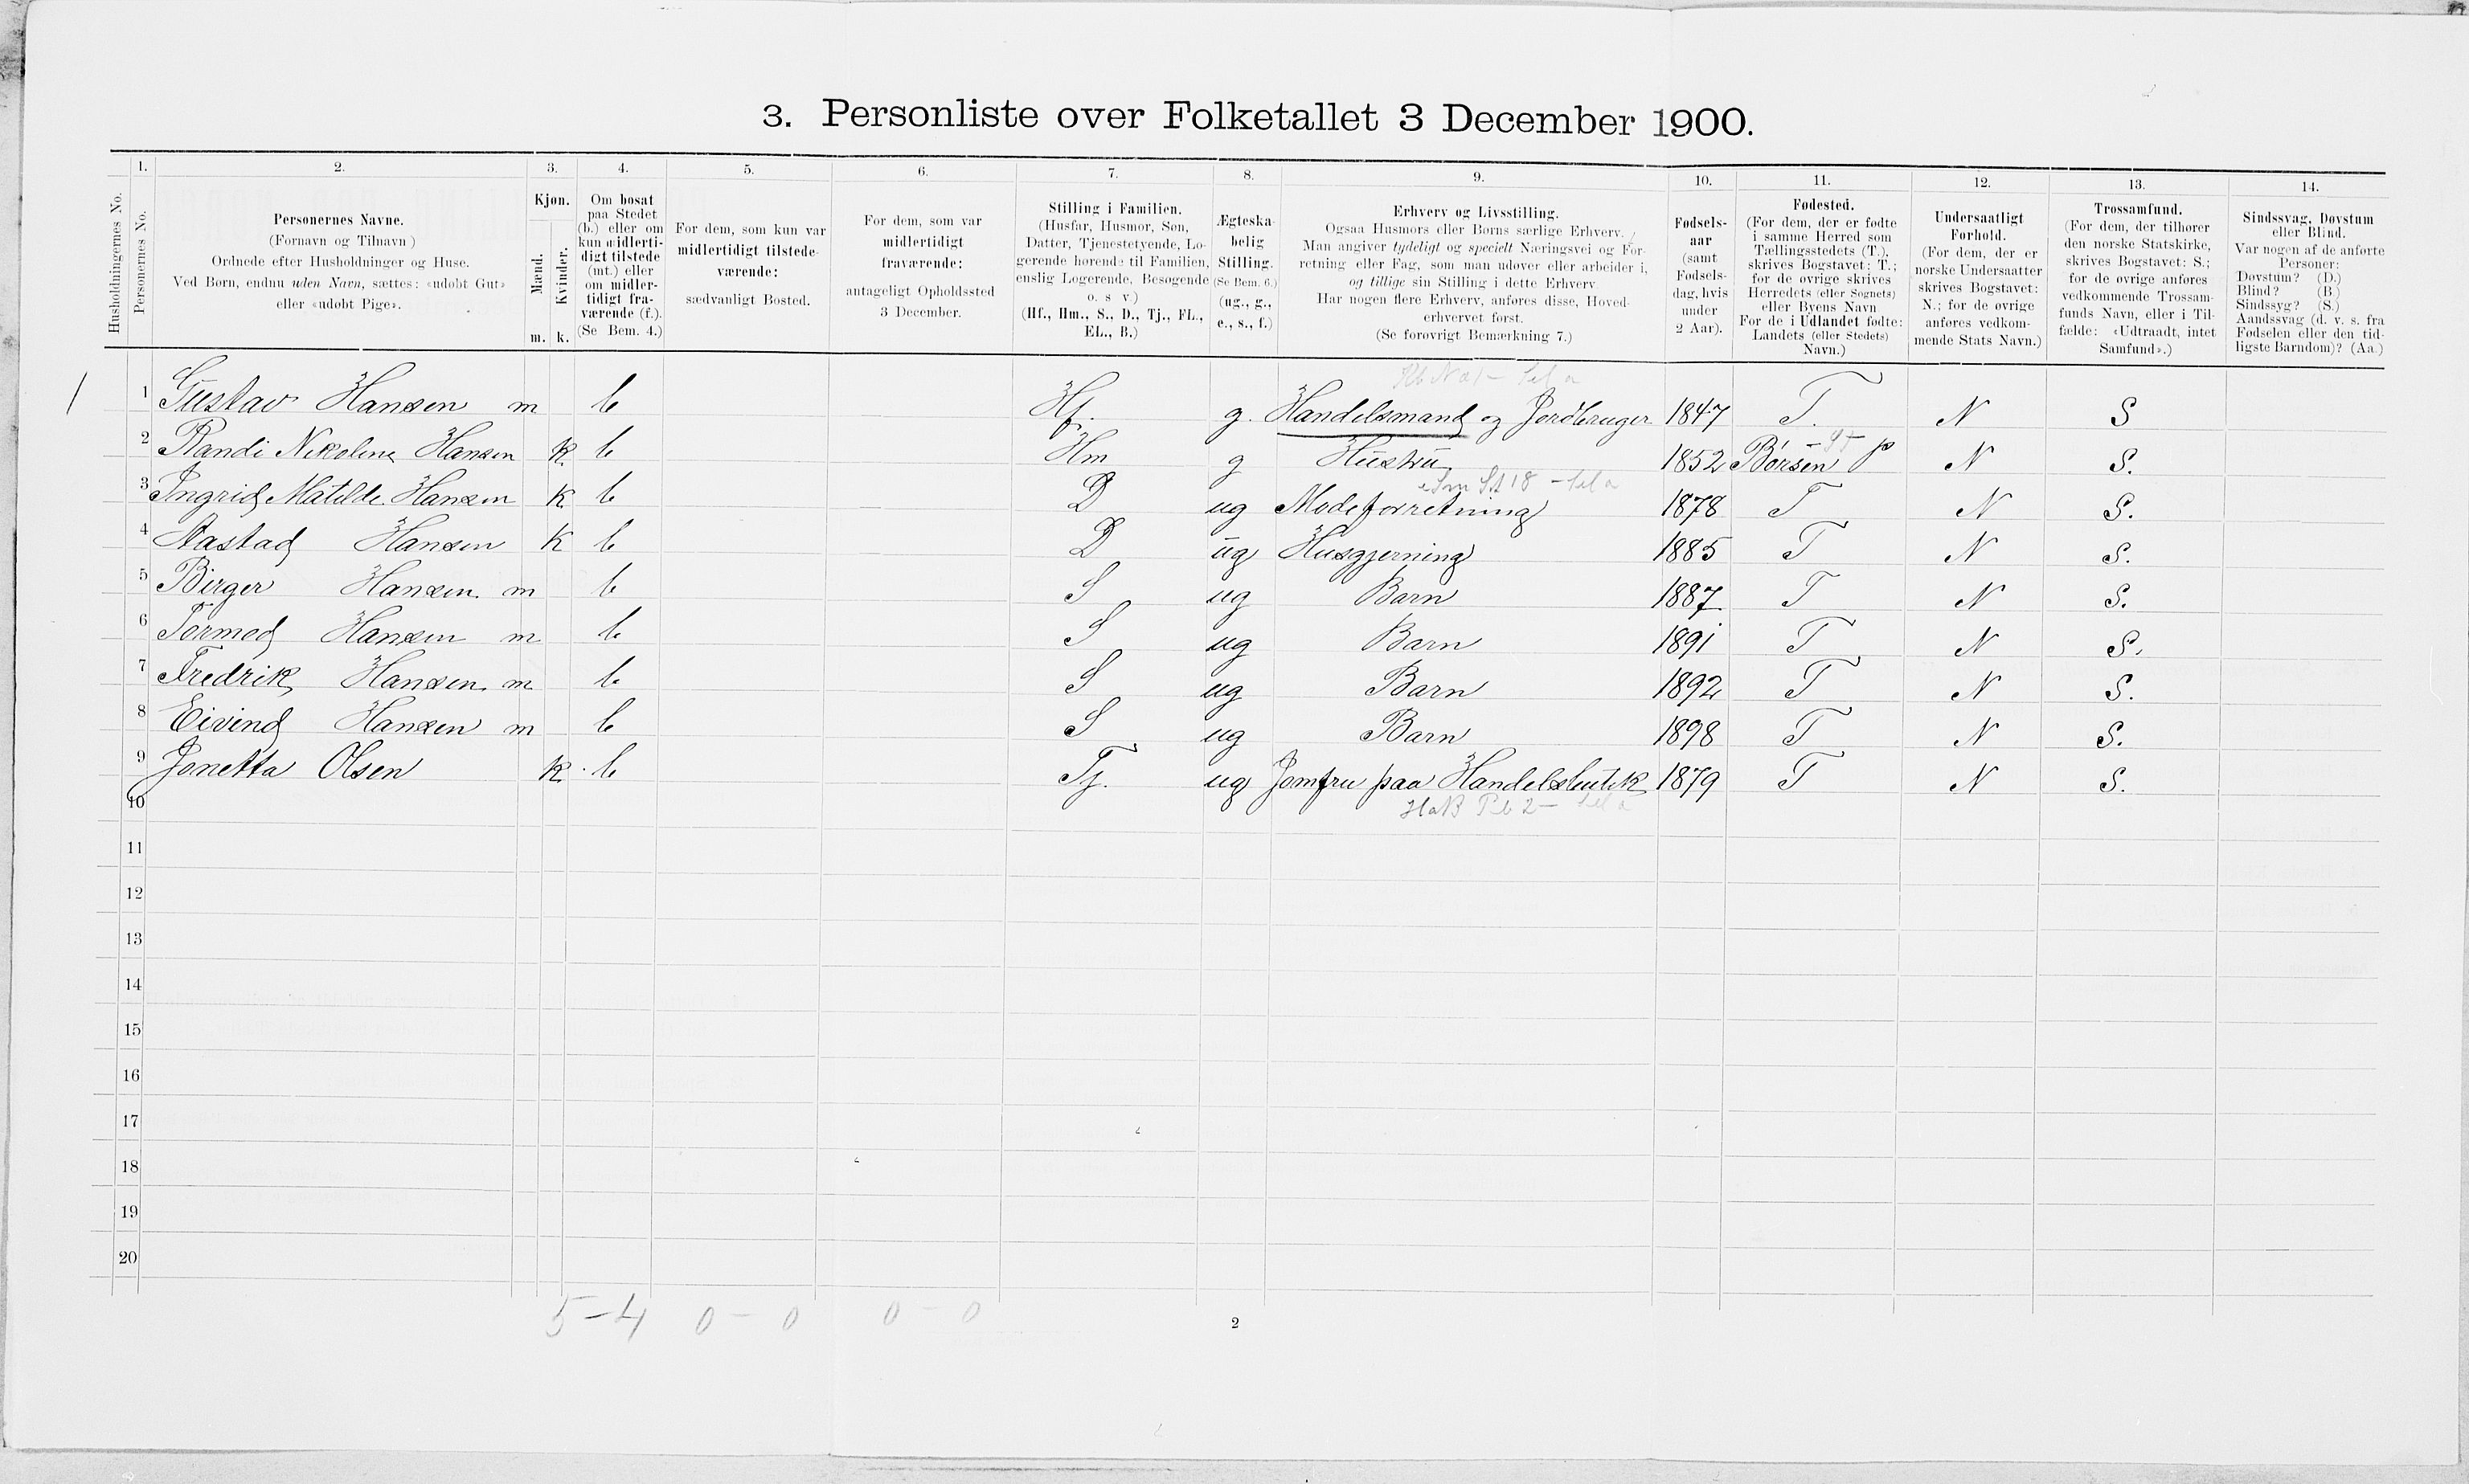 3. Personliste over Folketallet 3 December 1900.
1. 2. 3. 4. 5. 6. 7. 8. 9. 10. 11. 12. 13. 14.
Husholdningernes No.
Personernes No.
Personernes Navne.
(Fornavn og Tilnavn)
Ordnede efter Husholdninger og Huse.
Ved Børn, endnu uden Navn, sættes: «udøbt Gut»
eller «udøbt Pige».
Kjøn.
Mænd.
Kvinder.
m. k.
Om bosat
paa Stedet
(b.) eller om
kun midlerti-
digt tilstede
(mt.) eller
om midler-
tidigt fra-
værende (f.).
(Se Bem. 4.)
For dem, som kun var
midlertidigt tilstede-
værende:
sædvanligt Bosted.
For dem, som var
midlertidigt
fraværende:
antageligt Opholdssted
3 December.
Stilling i Familien.
(Husfar, Husmor, Søn,
Datter, Tjenestetyende, Lo-
gerende hørende til Familien,
enslig Logerende, Besøgende
o. s. v.)
(Hf., Hm., S., D., Tj., FL.,
EL., B.)
Ægteska-
belig
Stilling.
(Se Bem. 6.)
(ug., g.,
e., s., f.)
Erhverv og Livsstilling.
Ogsaa Husmors eller Børns særlige Erhverv.
Man angiver tydeligt og specielt Næringsvei og For-
retning eller Fag, som man udøver eller arbeider i,
og tillige sin Stilling i dette Erhverv.
Har nogen flere Erhverv, anføres disse, Hoved-
erhvervet først.
(Se forøvrigt Bemærkning 7.)
Fødsels-
aar
(samt
Fødsels-
dag, hvis
under
2 Aar).
Fødested.
(For dem, der er fødte
i samme Herred som
Tællingsstedets (T.),
skrives Bogstavet: T.;
for de øvrige skrives
Herredets (eller Sognets)
eller Byens Navn
For de i Udlandet fødte:
Landets (eller Stedets)
Navn.)
Undersaatligt
Forhold.
(For dem, der er
norske Undersaatter
skrives Bogstavet:
N.; for de øvrige
anføres vedkom-
mende Stats Navn.)
Trossamfund.
(For dem, der tilhører
den norske Statskirke,
skrives Bogstavet: S.;
for de øvrige anføres
vedkommende Trossam-
funds Navn, eller i Til-
fælde: «Udtraadt, intet
Samfund».)
Sindssvag, Døvstum
eller Blind.
Var nogen af de anførte
Personer:
Døvstum? (D.)
Blind? (B.)
Sindssyg? (S.)
Aandssvag (d. v. s. fra
Fødselen eller den tid-
ligste Barndom)? (Aa.)
1 Gustav Hansen m b Hf. g. Handelsmand og Jordbruger 1847 T. N S
2 Randi Nikoline Hansen k b Hm g Hustru 1852 Børsen N S.
3 Ingrid Matilde Hansen k b D ug Modeforretning 1878 T N S.
4 Aastad Hansen k b D ug Husgjerning 1885 T N S.
5 Birger Hansen m b S ug Barn 1887 T N S.
6 Tormod Hansen m b S ug Barn 1891 T N S.
7 Fredrik Hansen m b S ug Barn 1892 T N S.
8 Eivind Hansen m b S ug Barn 1898 T N S.
9 Jonetta Olsen k b Tj. ug Jomfru paa Handelsbutik 1879 T N S.
10
11
12
13
14
15
16
17
18
19
20
5 - 4 0 - 0 0 - 0
2